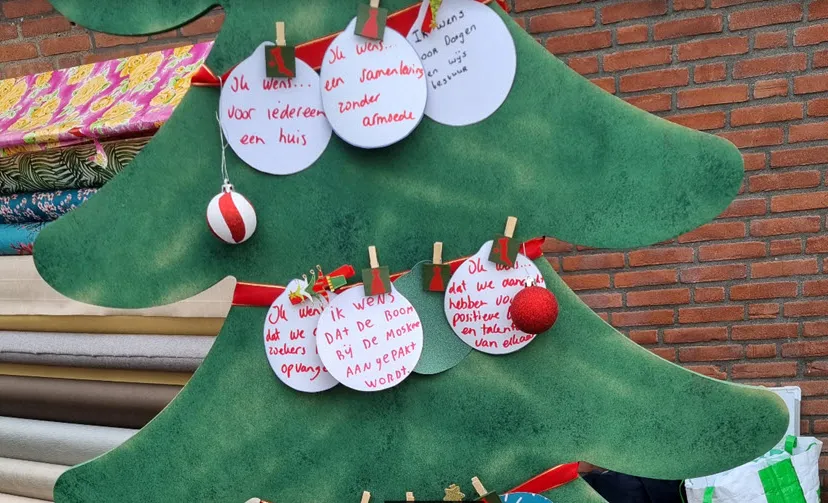 Ik wens...
voor iedereen
een huis
Ik wens...
een samenleving
zonder
armoede
Ik wens
voor Dongen
een wijs
bestuur
Ik wens
dat we
zoekers
opvange
IK WENS
DAT DE BOOM
BIJ DE MOSKEE
AANGEPAKT
WORDT.
Ik wens...
dat we
hebben voo
positieve
en talent
van elkaar